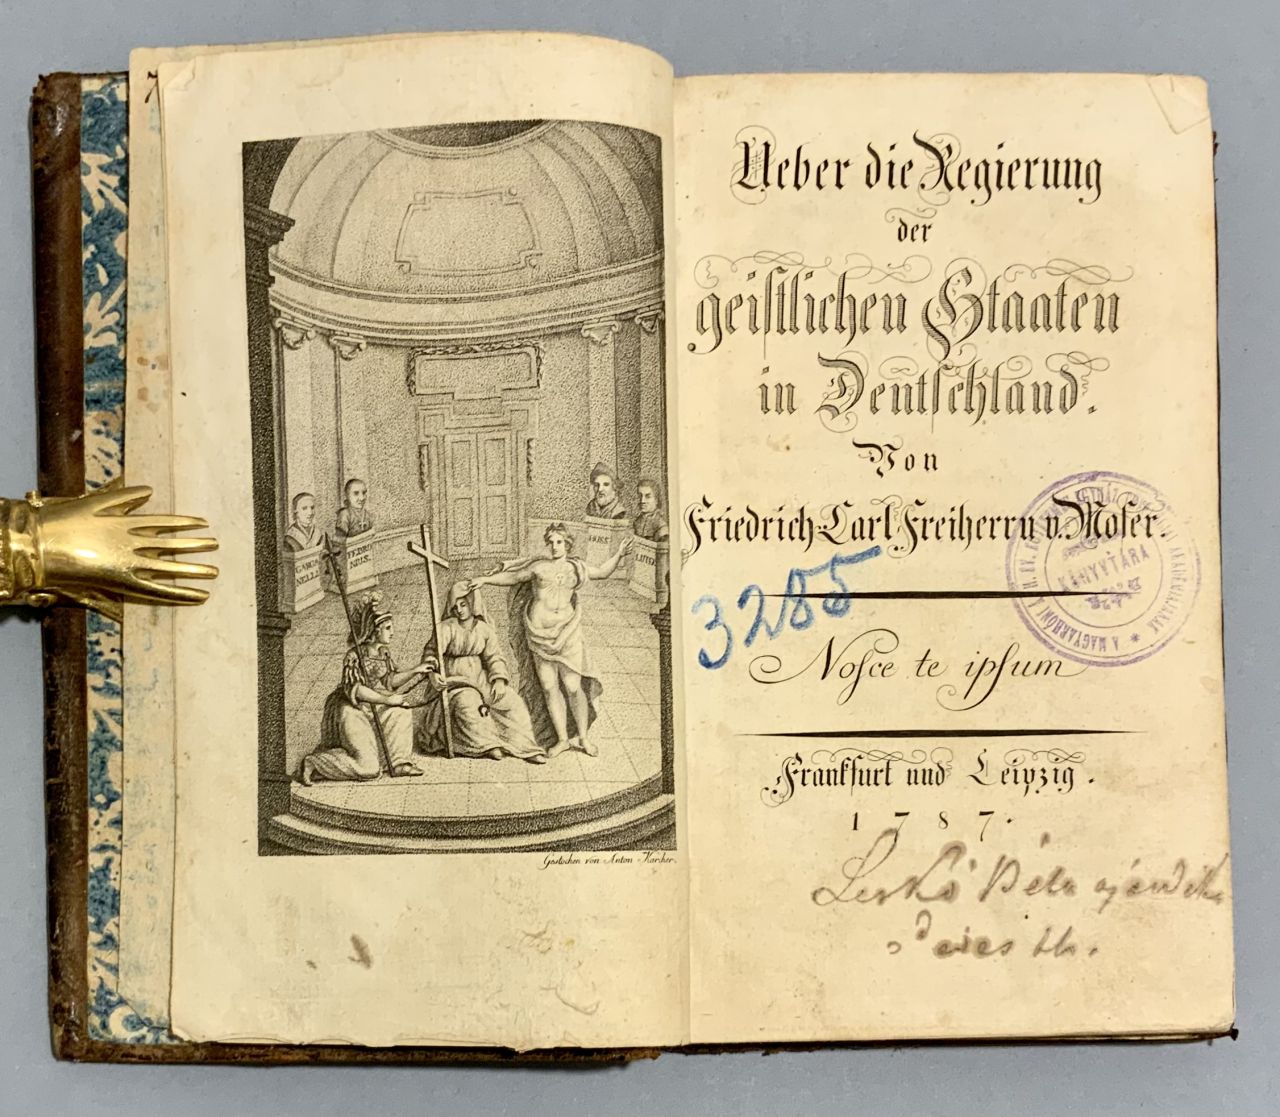 GANGA
NELLI
FEBRO
NIUS.
HUSS
LUTHER
Gestochen von Anton Karcher.
Ueber die Regierung
der
geiſtlichen Staaten
in Deutſchland.
Von
Friedrich Carl Freiherrn v. Moſer.
3285
KÖNYVTÁRA
Noſce te ipſum
Frankfurt und Leipzig.
1787.
Leskó Béla ajándéka